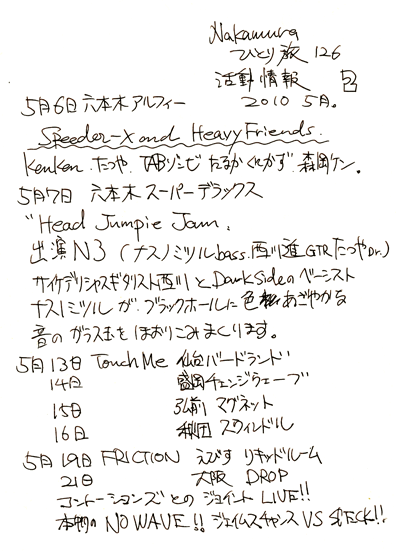 Nakamura
ひとり旅 126
活動情報
2010 5月。
5月6日 六本木アルフィー
Speeder-X and Heavy Friends.
KenKen. たつや. TABゾンビ たるか かず. 森岡ケン.
5月7日 六本木スーパーデラックス
"Head Jumpie Jam.
出演 N3 (ナスノミツル bass. 西川進 GTR たつや Dr.)
サイケデリシャスギタリスト西川とDark Sideのベーシスト
ナスノミツルが、ブラックホールに色あざやかな
音のガラス玉をほおりこみまくります。
5月13日 Touch Me 仙台バードランド
14日 盛岡チェンジウェーブ
15日 弘前 マグネット
16日 秋田 スウィンドル
5月19日 FRICTION えびす リキッドルーム
21日 大阪 DROP
コントーションズとのジョイント LIVE!!
本物の NO WAVE!! ジェイムスチャンス VS RECK!!